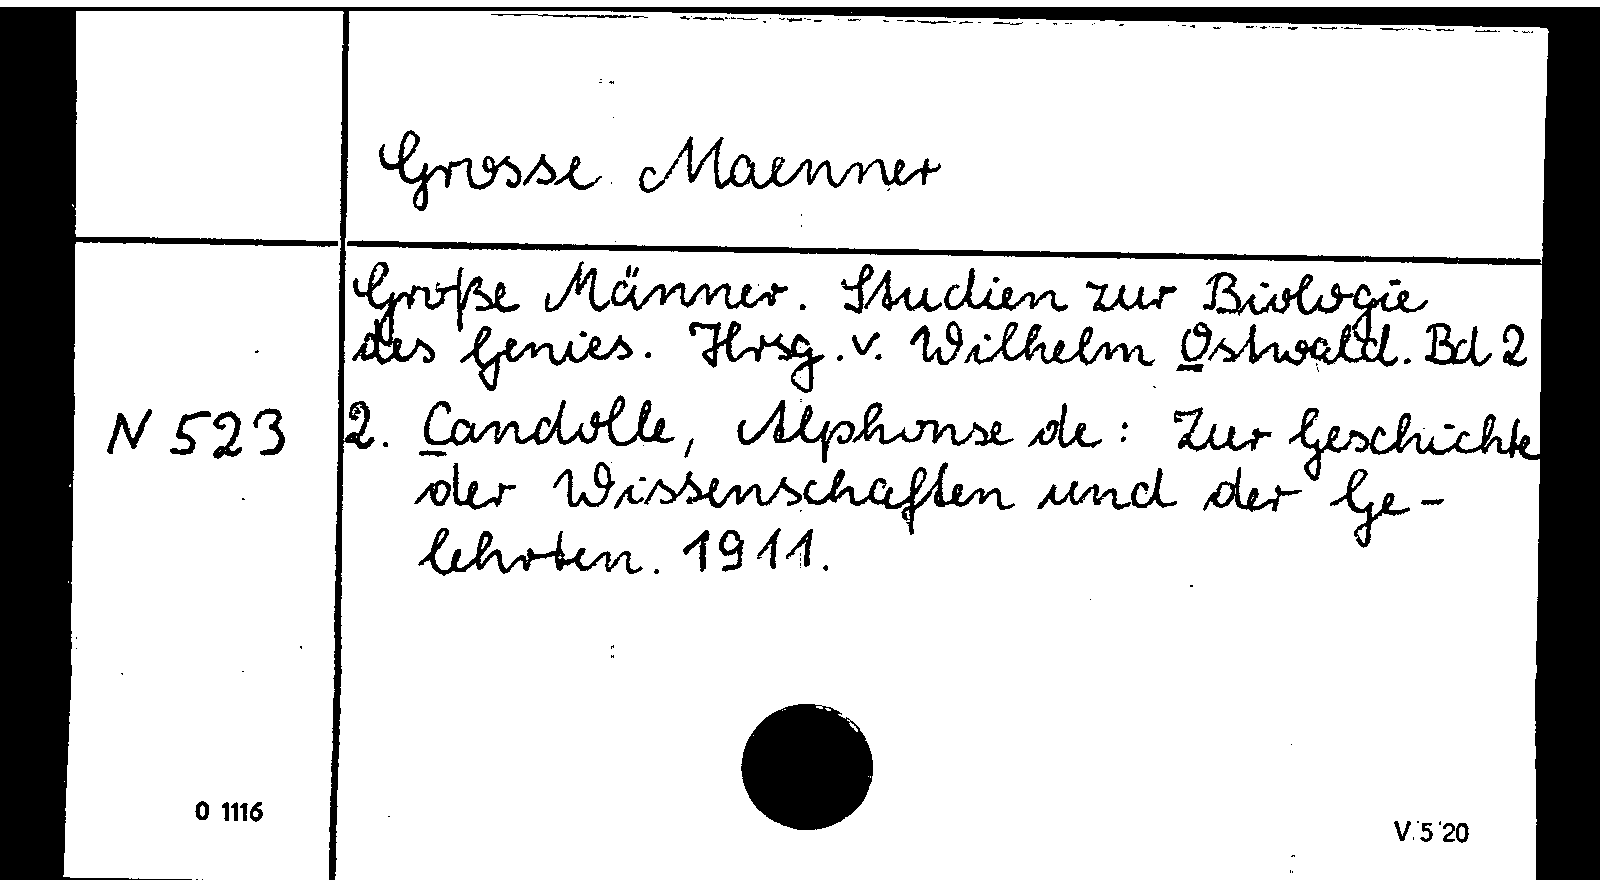 Grosse Maenner
Große Männer. Studien zur Biologie
des Genies. Hrsg. v. Wilhelm Ostwald. Bd 2
N 523 2. Candolle, Alphonse de: Zur Geschichte
der Wissenschaften und der Ge-
lehrten. 1911.
O 1116
V 5 20